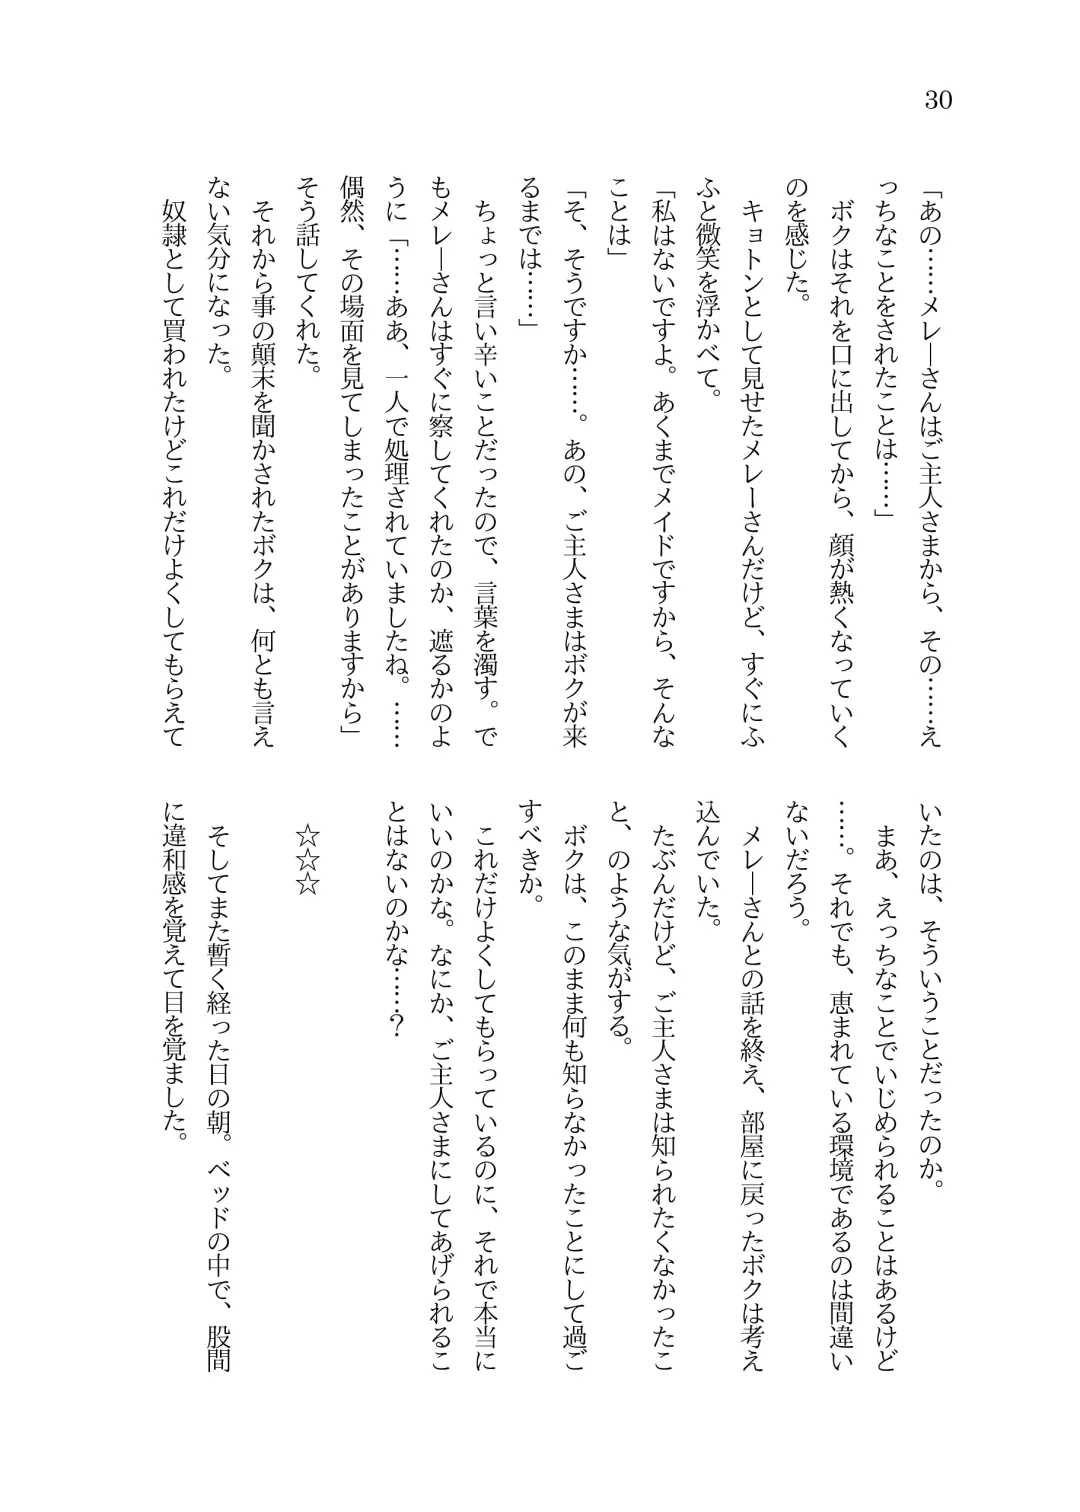 30
「あの……メレーさんはご主人さまから、その……え
っちなことをされたことは……」
ボクはそれを口に出してから、顔が熱くなっていく
のを感じた。
キョトンとして見せたメレーさんだけど、すぐにふ
ふと微笑を浮かべて。
「私はないですよ。あくまでメイドですから、そんな
ことは」
「そ、そうですか……。あの、ご主人さまはボクが来
るまでは……」
ちょっと言い辛いことだったので、言葉を濁す。で
もメレーさんはすぐに察してくれたのか、遮るかのよ
うに「……ああ、一人で処理されていましたね。……
偶然、その場面を見てしまったことがありますから」
そう話してくれた。
それから事の顛末を聞かされたボクは、何とも言え
ない気分になった。
奴隷として買われたけどこれだけよくしてもらえて
いたのは、そういうことだったのか。
まあ、えっちなことでいじめられることはあるけど
……。それでも、恵まれている環境であるのは間違い
ないだろう。
メレーさんとの話を終え、部屋に戻ったボクは考え
込んでいた。
たぶんだけど、ご主人さまは知られたくなかったこ
と、のような気がする。
ボクは、このまま何も知らなかったことにして過ご
すべきか。
これだけよくしてもらっているのに、それで本当に
いいのかな。なにか、ご主人さまにしてあげられるこ
とはないのかな……？
☆☆☆
そしてまた暫く経った日の朝。ベッドの中で、股間
に違和感を覚えて目を覚ました。